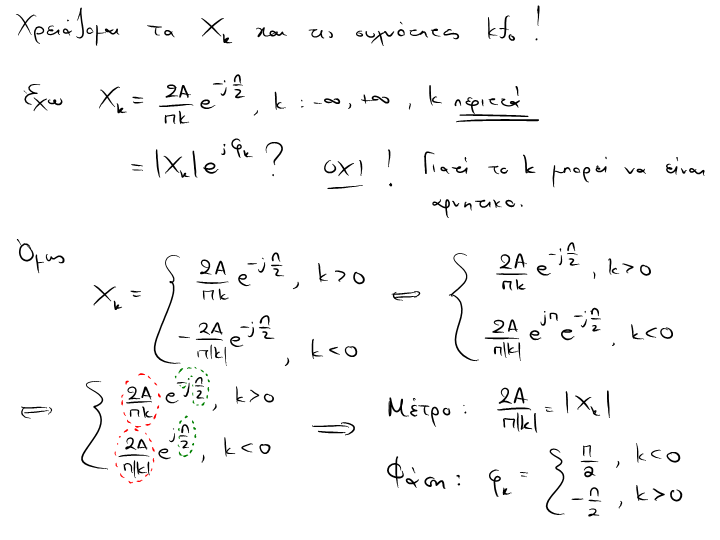 Χρειάζομαι τα X_k και τις συχνότητες kf₀ !
Έχω X_k = 2A/πk e^{-jπ/2}, k : -∞, +∞, k περιττά
= |X_k| e^{jφ_k} ? ΟΧΙ ! Γιατί το k μπορεί να είναι
αρνητικο.
Όμως X_k = { 2A/πk e^{-jπ/2}, k>0 ⇔ { 2A/πk e^{-jπ/2}, k>0
-2A/π|k| e^{-jπ/2}, k<0 2A/π|k| e^{jπ} e^{-jπ/2}, k<0
⇔ { 2A/πk e^{-jπ/2}, k>0 ⟹ Μέτρο: 2A/π|k| = |X_k|
2A/π|k| e^{jπ/2}, k<0 Φάση: φ_k = { π/2, k<0
-π/2, k>0